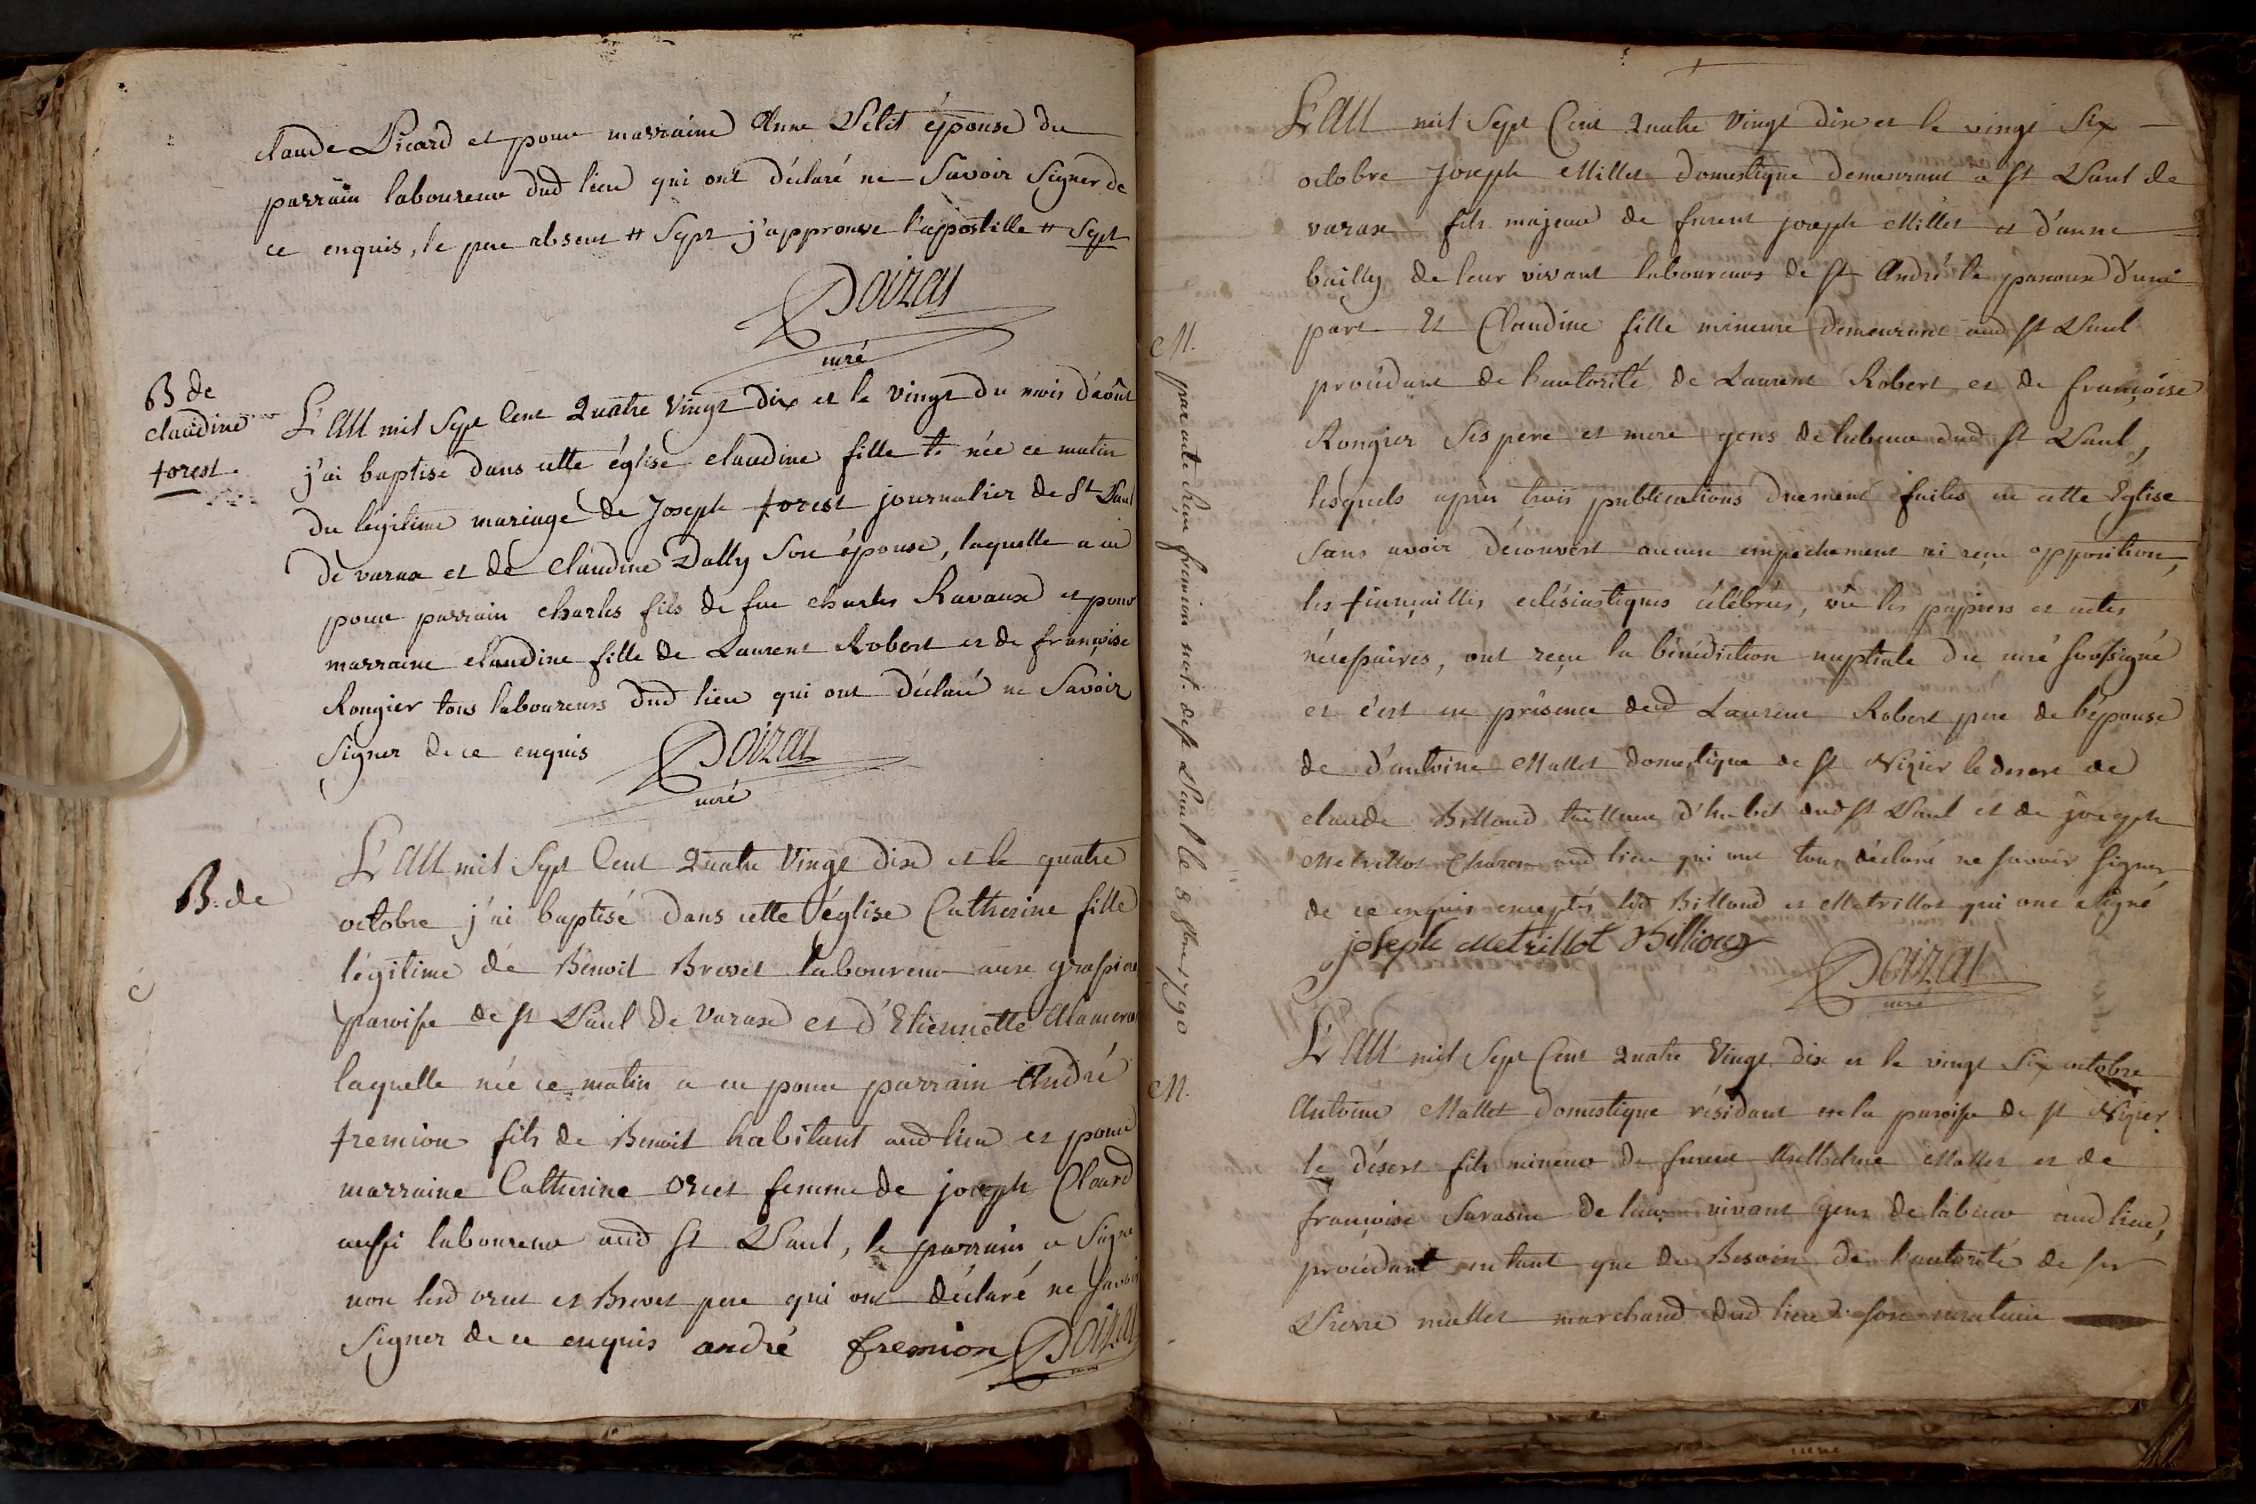 claude Picard et pour marraine Anne Petit épouse du
parrain laboureur dud lieu qui ont déclaré ne Savoir Signer de
ce enquis, le pere absent # Sept j'approuve l'apostille # Sept
Doizat
curé
B de
claudine
forest
L'AN mil Sept Cent Quatre Vingt Dix et le vingt du mois d'août
j'ai baptisé dans cette église claudine fille née ce matin
du légitime mariage de Joseph forest journalier de St Paul
de varax et de claudine Dally Son épouse, laquelle a eu
pour parrain charles fils de feu charles Ravaux et pour
marraine claudine fille de Laurent Robert et de françoise
Rongier tous laboureurs dud lieu qui ont déclaré ne Savoir
Signer de ce enquis Doizat
curé
B. de
L'AN mil Sept Cent Quatre Vingt Dix et le quatre
octobre j'ai baptisé dans cette église Catherine fille
légitime de Benoit Brevet laboureur aux
paroisse de st Paul de Varax et d'Etiennette
laquelle née ce matin a eu pour parrain André
fremion fils de Benoit habitant aud lieu et pour
marraine Catherine oret femme de joseph Cloard
aussi laboureur aud st Paul, le parrain a Signé
non lesd oret et Brevet pere qui ont déclaré ne Savoir
Signer de ce enquis andré fremion Doizat
M.
par acte reçu fremion not. de st Paul le 8 1790
L'AN mil Sept Cent Quatre Vingt dix et le vingt Six
octobre Joseph Millet domestique demeurant a st Paul de
varax fils majeur de furent joseph Millet et d'anne
bailly de leur vivant laboureurs de st André le panoux d'une
part Et Claudine fille mineure demeurant aud st Paul
procédant de l'autorité de Laurent Robert et de françoise
Rongier Ses pere et mere gens de labeur dud st Paul,
lesquels après trois publications duement faites en cette Eglise
Sans avoir découvert aucun empechement ni reçu opposition,
les fiançailles eclésiastiques célébrées, vu les papiers et actes
nécessaires, ont reçu la bénédiction nuptiale du curé soussigné
et c'est en présence dud Laurent Robert pere de l'épouse
de d'antoine Mallet domestique de st Nizier le desert de
claude Billoud tailleur d'habit dud st Paul et de joseph
Metrillot Charon aud lieu qui ont tous déclaré ne savoir signer
de ce enquis exceptés lesd Billoud et Metrillot qui ont Signé
joseph Metrillot Billioud
Doizat
curé
M.
L'AN mil Sept Cent Quatre Vingt dix et le vingt Six octobre
Antoine Mallet domestique résidant en la paroisse de st Nizier
le désert fils mineur de furent Anthelme Mallet et de
françoise Sarasin de leur vivant gens de labeur aud lieu,
procédant en tant que de Besoin de l'autorité de sr
Pierre mallet marchand dud lieu Son curateur